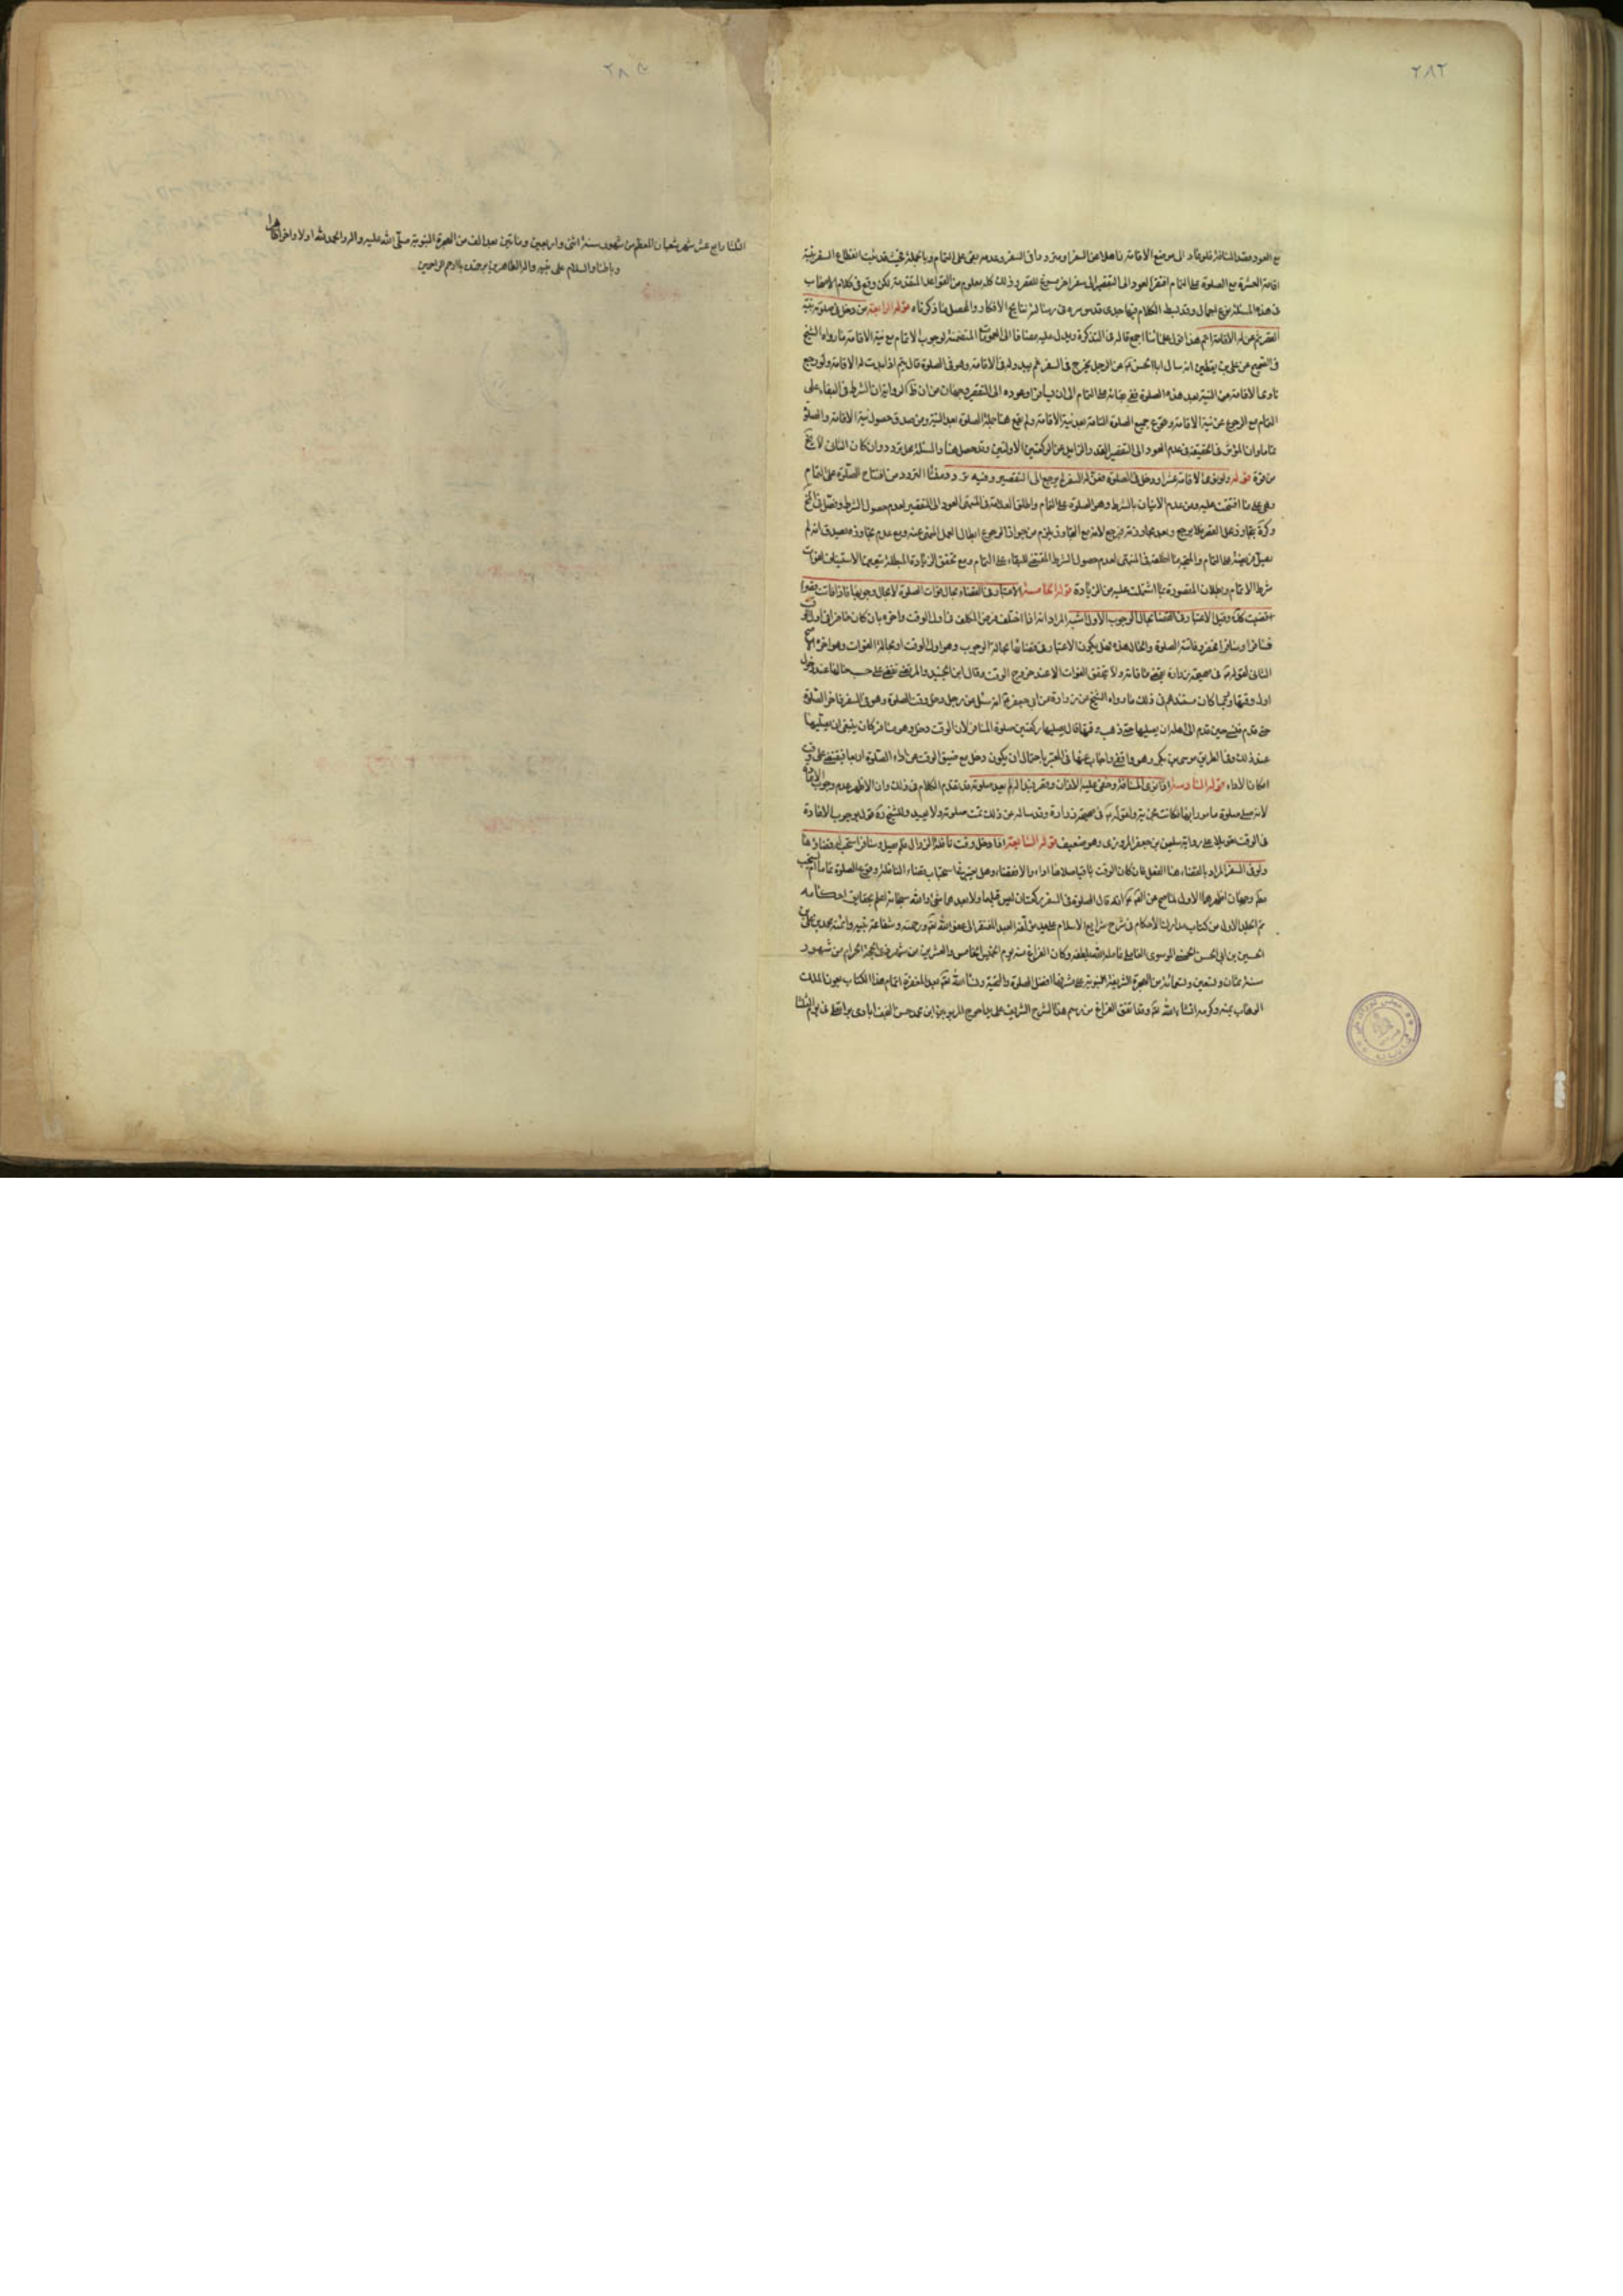 ٢٨٢
مع العود بقصد المسافة فلو عاد الى موضع الاقامة ذاهلا عن السفر او مترددا فى السفر وعدمه بقى على التمام وبالجملة فحيث قد ثبت انقطاع السفر بنية
اقامة العشرة مع الصلوة على التمام افتقر العود الى التقصير الى سفر اخر مسوغ للقصر وذلك كله معلوم من القواعد المتقدمة لكن وقع فى كلام الاصحاب
فى هذه المسئلة نوع اجمال وقد بسط الكلام فيها جدى قدس سره فى رسالة نتايج الافكار والمحصل ما ذكرناه قوله الرابعة من دخل فى صلوة بنية
القصر ثم عن له الاقامة اتم هذا قول علمائنا اجمع قاله فى التذكرة ويدل عليه مضافا الى العمومات المتضمنة لوجوب الاتمام مع نية الاقامة ما رواه الشيخ
فى الصحيح عن على بن يقطين انه سال ابا الحسن ع عن الرجل يخرج فى السفر ثم يبدو له فى الاقامة وهو فى الصلوة قال يتم اذا بدت له الاقامة ولو رجع
ناوى الاقامة عن النية بعد هذه الصلوة ففى بقائه على التمام الى ان يسافر او عوده الى التقصير وجهان من ان ظاهر الرواية ان الشرط فى البقاء على
التمام مع الرجوع عن نية الاقامة وقوع جميع الصلوة التامة بعد نية الاقامة ولم يقع هنا جملة الصلوة بعد النية ومن صدق حصول نية الاقامة والصلوة
تماما وان المؤثر فى الحقيقة فى عدم العود الى التقصير القدر الزايد عن الركعتين الاولتين وقد حصل هنا والمسئلة محل تردد وان كان الثانى لا يخ
من قوة قوله ولو نوى الاقامة عشرا ودخل فى الصلوة فعن له السفر لم يرجع الى التقصير وفيه تردد ومنشا التردد من افتتاح الصلوة على التمام
وهى على ما افتتحت عليه ومن عدم الاتيان بالشرط وهو الصلوة على التمام واطلق العلامة فى المنتهى العود الى التقصير لعدم حصول الشرط وفصل فى المخ
وكرة بتجاوز محل القصر فلا يرجع وبعدم تجاوزه فيرجع لانه مع التجاوز يلزم من جواز الرجوع ابطال العمل المنهى عنه ومع عدم تجاوزه يصدق انه لم
يصل فريضة على التمام والمتجه ما اطلقه فى المنتهى لعدم حصول الشرط المقتضى للبقاء على التمام ومع تحقق الزيادة المبطلة يتعين الاستيناف لفوات
شرط الاتمام وبطلان المقصورة بما اشتملت عليه من الزيادة قوله الخامسة الاعتبار فى القضاء بحال فوات الصلوة لا بحال وجوبها فاذا فاتت قصرا
قضيت كذلك وقيل الاعتبار فى القضا بحال الوجوب الاول اشبه المراد انه اذا اختلف فرض المكلف فى اول الوقت واخره بان كان حاضرا فى اول الوقت
فسافر او مسافرا فحضر وفاتته الصلوة والحال هذه فهل يكون الاعتبار فى قضائها بحالة الوجوب وهو اول الوقت او بحالة الفوات وهو اخره الاصح
الثانى لقوله ع فى صحيحة زرارة يقضى ما فاته ولا يتحقق الفوات الا عند خروج الوقت وقال ابن الجنيد والمرتضى يقضى على حسب حالها عند دخول
اول وقتها وربما كان مستندهم فى ذلك ما رواه الشيخ عن زرارة عن ابى جعفر ع انه سئل عن رجل دخل وقت الصلوة وهو فى السفر فاخر الصلوة
حتى قدم فنسى حين قدم الى اهله ان يصليها حتى ذهب وقتها قال يصليها ركعتين صلوة المسافر لان الوقت دخل وهو مسافر كان ينبغى ان يصليها
عند ذلك وفى الطريق موسى بن بكر وهو واقفى واجاب عنها فى المعتبر باحتمال ان يكون دخل مع ضيق الوقت عن اداء الصلوة اربعا فيقضى على وقت
امكان الاداء قوله السادسة اذا نوى المسافة وخفى عليه الاذان وقصر فبدا له لم يعد صلوته قد تقدم الكلام فى ذلك وان الاظهر عدم وجوب الاعادة
لانه صلى صلوة مامورا بها فكانت مجزية ولقوله ع فى صحيحة زرارة وقد ساله عن ذلك تمت صلوته ولا يعيد وللشيخ ره قول بوجوب الاعادة
فى الوقت تعويلا على رواية سليمن بن جعفر المروزى وهو ضعيف قوله السابعة اذا دخل وقت نافلة الزوال فلم يصل وسافر استحب له قضاؤها
ولو فى السفر المراد بالقضاء هنا الفعل فان كان الوقت باقيا صلاها اداء والا فقضاء وهل يعتبر فى استحباب قضاء النافلة وقوع الصلوة تماما ام يستحب
مطلقا وجهان اظهرهما الاول لما صح عن الصم ع انه قال الصلوة فى السفر ركعتان ليس قبلهما ولا بعدهما شئ والله سبحانه اعلم بحقايق احكامه
تم المجلد الاول من كتاب مدارك الاحكام فى شرح شرايع الاسلام على يد مؤلفه العبد المفتقر الى عفو الله تعالى ورحمته وشفاعة نبيه وائمته محمد بن على بن
الحسين بن ابى الحسن الحسينى الموسوى العاملى عامله الله بلطفه وكان الفراغ منه يوم الخميس الخامس والعشرين من شهر ذى الحجة الحرام من شهور
سنة ثمان وتسعين وتسعمائة من الهجرة الشريفة النبوية على مشرفها افضل الصلوة والتحية ونسأ الله تعالى بعد المغفرة اتمام هذا الكتاب بعون الملك
الوهاب بمنه وكرمه انشاء الله تعالى وقد اتفق الفراغ من رسم هذا الشرح الشريف على يد احوج المربوبين ابن محمد حسن النجف ابادى فى يوم الثلثا
٢٨٥
الثلثا رابع عشر شهر شعبان المعظم من شهور سنة اثنى واربعين وماتين بعد الف من الهجرة النبوية صلى الله عليه واله والحمد لله اولا واخرا وظاهرا
وباطنا والسلام على نبيه واله الطاهرين برحمتك يا ارحم الراحمين